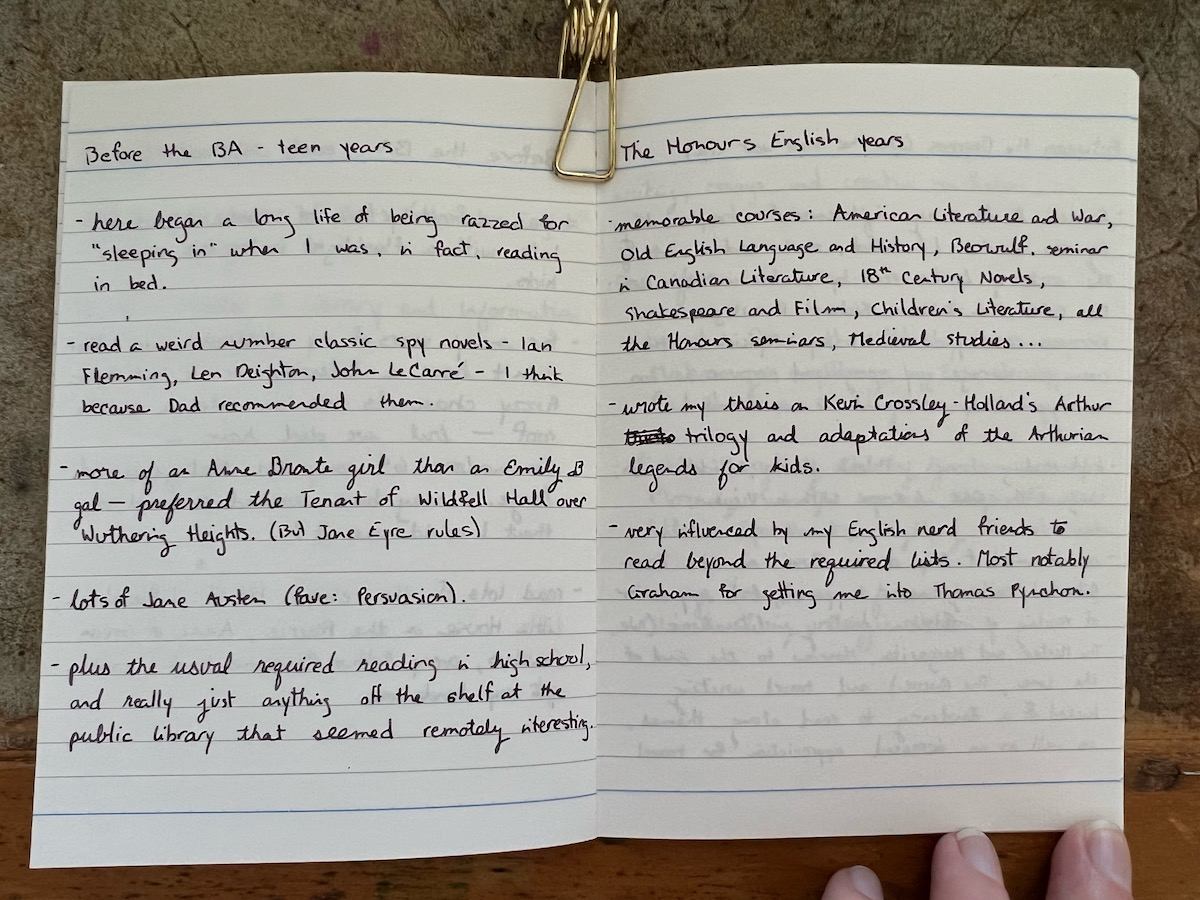 Before the BA - teen years
- here began a long life of being razzed for
"sleeping in" when I was, in fact, reading
in bed.
- read a weird number classic spy novels - Ian
Flemming, Len Deighton, John LeCarré - I think
because Dad recommended them.
- more of an Anne Bronte girl than an Emily B
gal — preferred the Tenant of Wildfell Hall over
Wuthering Heights. (But Jane Eyre rules)
- lots of Jane Austen (fave: Persuasion).
- plus the usual required reading in high school,
and really just anything off the shelf at the
public library that seemed remotely interesting.
The Honours English years
- memorable courses: American Literature and War,
Old English Language and History, Beowulf, seminar
in Canadian Literature, 18th Century Novels,
Shakespeare and Film, Children's Literature, all
the Honours seminars, Medieval Studies...
- wrote my thesis on Kevin Crossley-Holland's Arthur
trilogy and adaptations of the Arthurian
legends for kids.
- very influenced by my English nerd friends to
read beyond the required lists. Most notably
Graham for getting me into Thomas Pynchon.